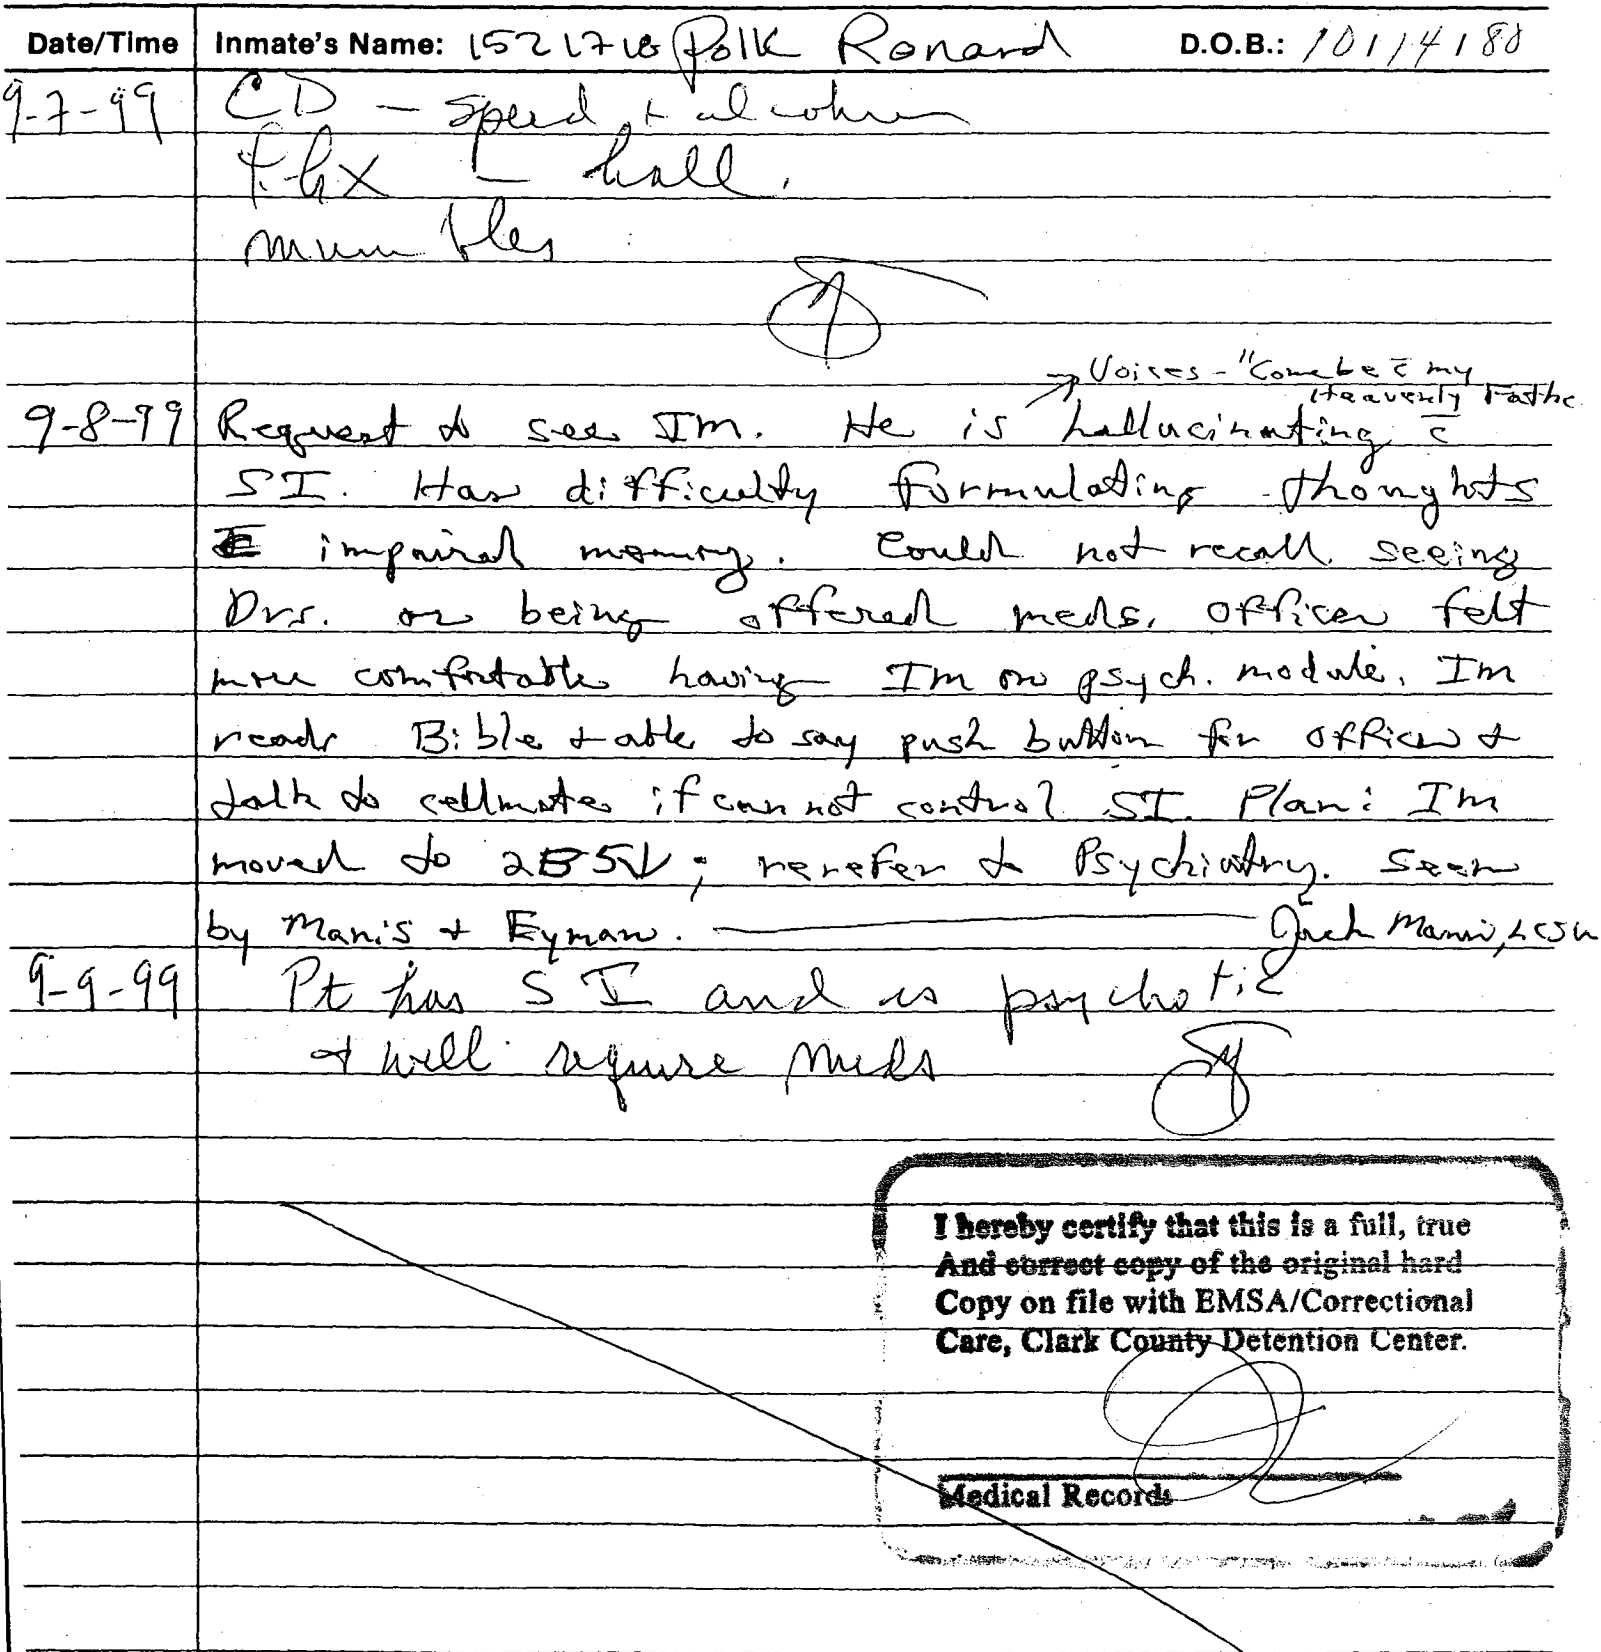 Date/Time Inmate's Name: Polk Ronard D.O.B.: 10/14/80
9-7-99 CD — speed + alcohol
f.hx – hall.
mumbles
→ Voices - "Come be c̄ my
Heavenly Fathe
9-8-99 Request to see IM. He is hallucinating c̄
SI. Has difficulty formulating thoughts
impaired memory. Could not recall seeing
Drs. or being offered meds. Officer felt
more comfortable having IM on psych. module. IM
reads Bible + able to say push button for officer +
talk to cellmates if can not control SI. Plan: IM
moved to 2B5V; rerefer to Psychiatry. Seen
by Manis + Eyman. — Jack Manis, LCSW
9-9-99 Pt has SI and is psychotic
+ will require meds
I hereby certify that this is a full, true
And correct copy of the original hard
Copy on file with EMSA/Correctional
Care, Clark County Detention Center.
Medical Records